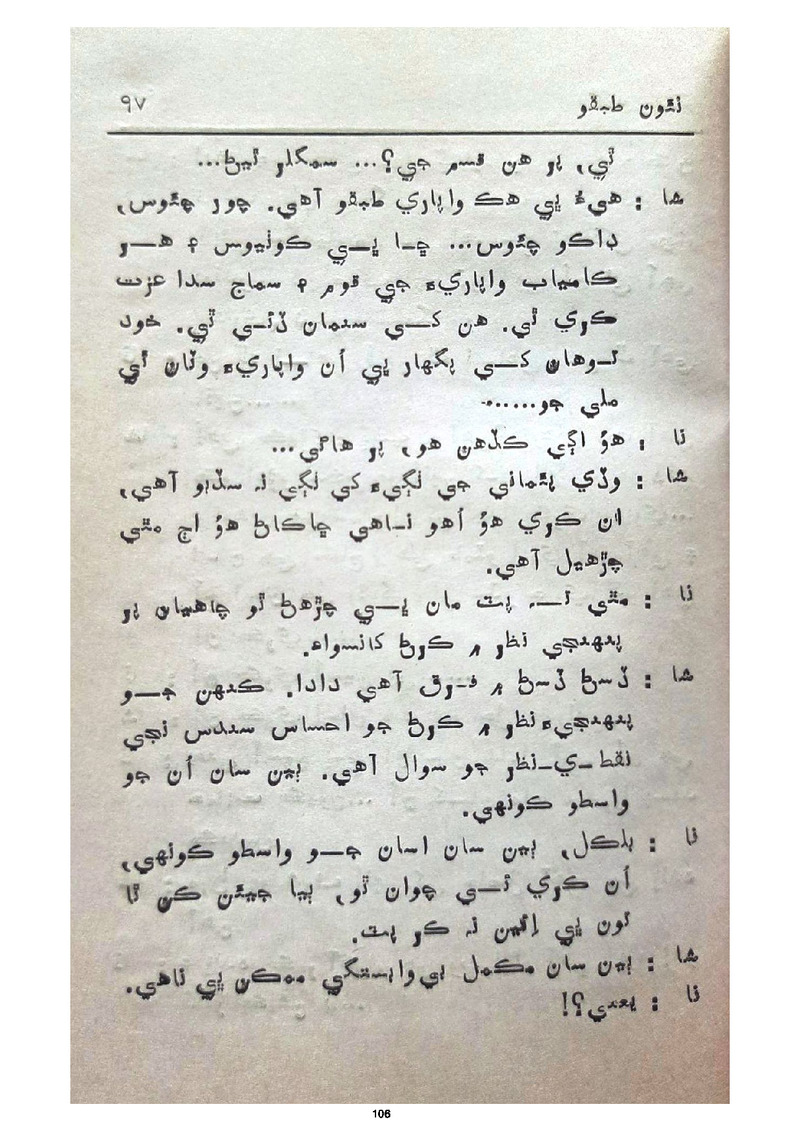 نئون طبقو ٩٧
ٿي، پر هن قسم جي؟... سمگلر ٿيڻ...
شا : هيءُ ڀي هڪ واپاري طبقو آهي. چور چئوس،
ڊاڪو چئوس... ڇا ڀي ڪوٺيوس ۽ هر
ڪامياب واپاريءَ جي قوم ۽ سماج سدا عزت
ڪري ٿي. هن کي سنمان ڏئي ٿي. خود
توهان کي پگهار ڀي اُن واپاريءَ وٽان ٿي
ملي جو......
نا : هوُ اڳي ڪڏهن هو، پر هاڻي...
شا : وڏي پئماني جي ٺڳيءَ کي ٺڳي نہ سڏبو آهي،
ان ڪري هوُ اُهو ناهي ڇاڪاڻ هوُ اڄ مٿي
چڙهيل آهي.
نا : مٿي تہ پٽ مان ڀي چڙهڻ ٿو چاهيان پر
پنهنجي نظر ۾ ڪرڻ کانسواءِ.
شا : ڏسڻ ڏسڻ ۾ فرق آهي دادا. ڪنهن جو
پنهنجيءَ نظر ۾ ڪرڻ جو احساس سندس نجي
نقط_ي_نظر جو سوال آهي. ٻين سان اُن جو
واسطو ڪونهي.
نا : بلڪل، ٻين سان اسان جو واسطو ڪونهي،
اُن ڪري ئي چوان ٿو، ٻيا جيئن ڪن ٿا
تون ڀي اِئين نہ ڪر پٽ.
شا : ٻين سان مڪمل بي‌وابستگي ممڪن ڀي ناهي.
نا : يعني؟!
106